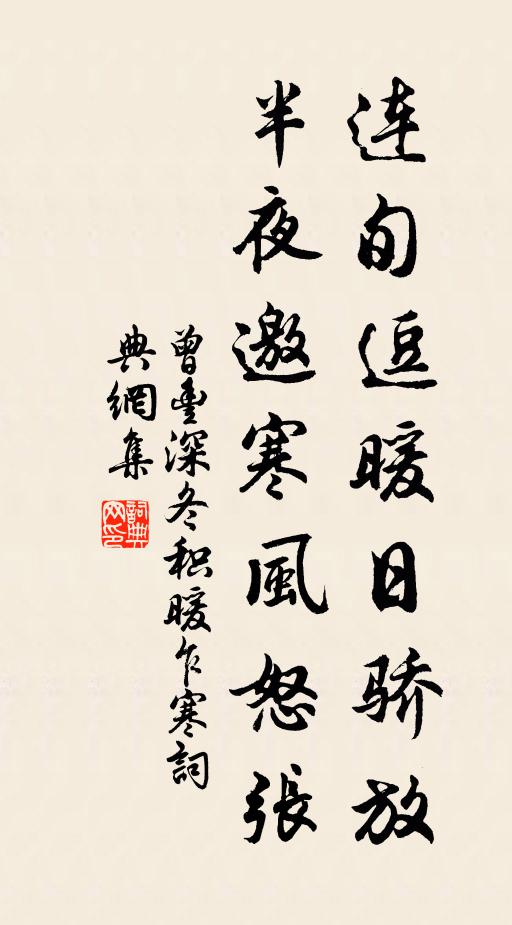 连旬逗暖日骄放
半夜邀寒風怒張
曾豐深冬积暖乍寒詞
典網集
詞典
网印